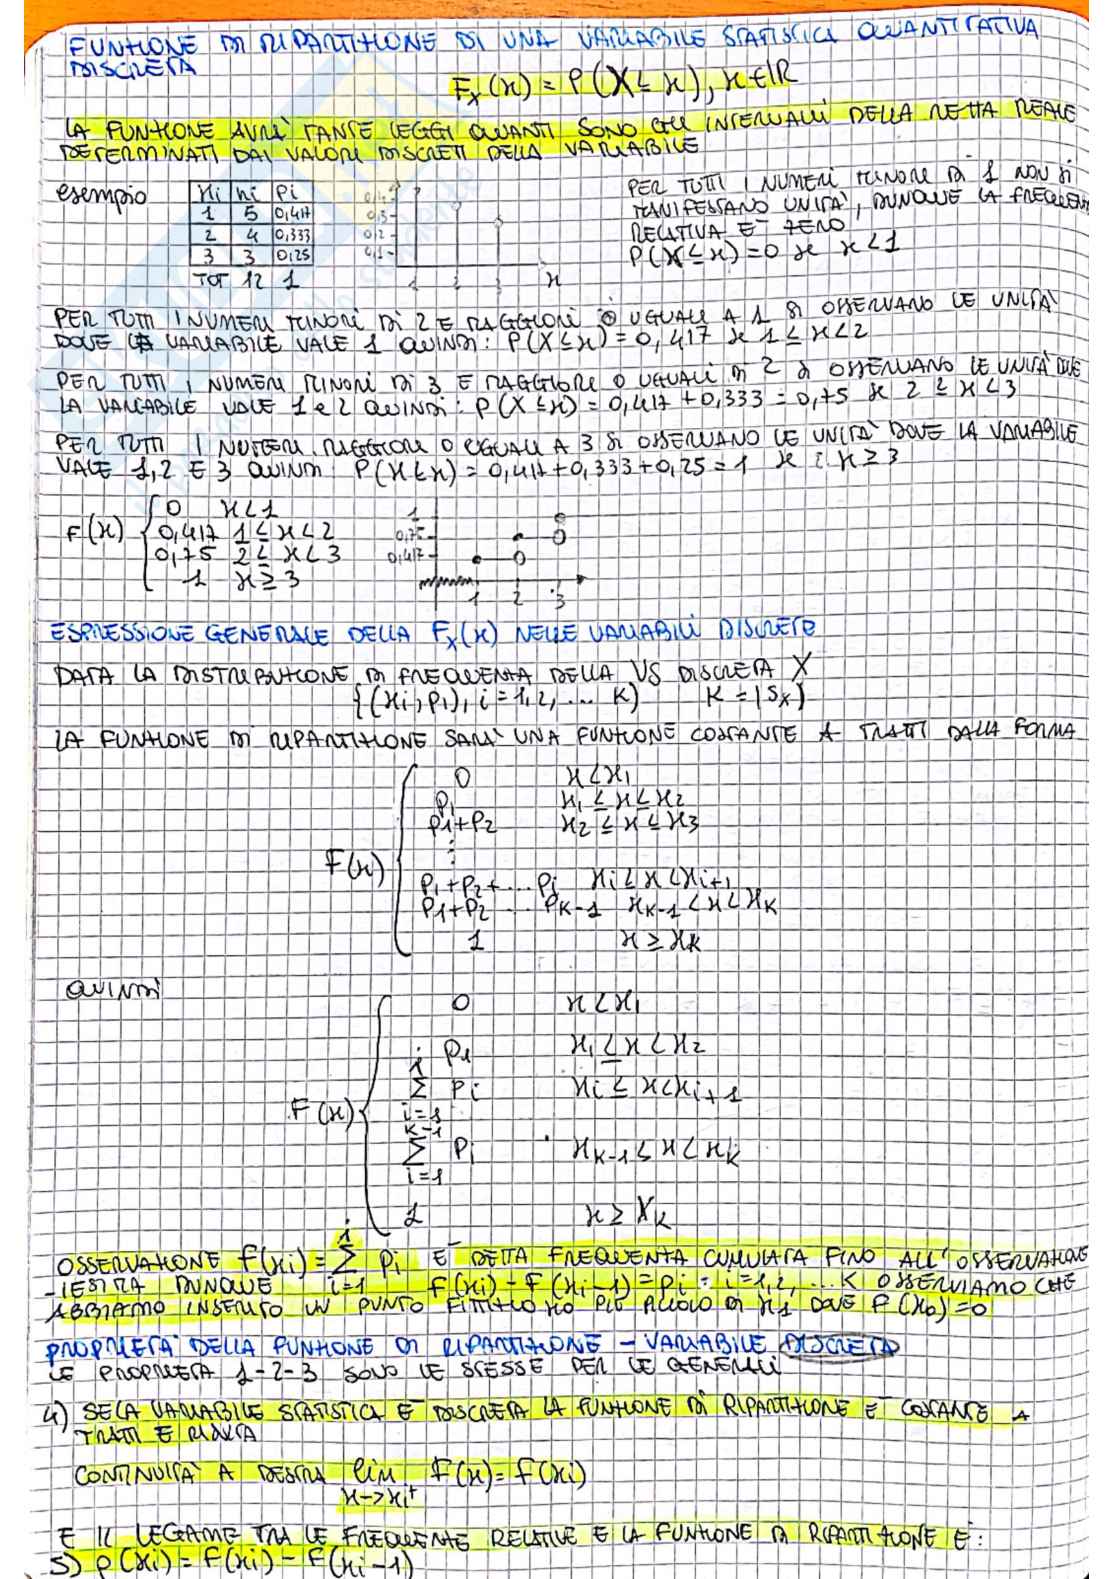 FUNZIONE DI RIPARTIZIONE DI UNA VARIABILE STATISTICA QUANTITATIVA
DISCRETA
Fx(x) = P(X≤x), x∈IR
LA FUNZIONE AVRA' TANTE LEGGI QUANTI SONO GLI INTERVALLI DELLA RETTA REALE
DETERMINATI DAI VALORI DISCRETI DELLA VARIABILE
esempio
xi ni pi
1 5 0,417
2 4 0,333
3 3 0,25
TOT 12 1
0,4
0,3
0,2
0,1
1 2 3 x
PER TUTTI I NUMERI MINORI DI 1 NON SI
MANIFESTANO UNITA', DUNQUE LA FREQUENZ
RELATIVA E' ZERO
P(X≤x)=0 se x<1
PER TUTTI I NUMERI MINORI DI 2 E MAGGIORI O UGUALI A 1 SI OSSERVANO LE UNITA'
DOVE LA VARIABILE VALE 1 QUINDI: P(X≤x)=0,417 se 1≤x<2
PER TUTTI I NUMERI MINORI DI 3 E MAGGIORE O UGUALI DI 2 SI OSSERVANO LE UNITA' DOVE
LA VARIABILE VALE 1 e 2 QUINDI: P(X≤x) = 0,417+0,333=0,75 se 2≤x<3
PER TUTTI I NUMERI MAGGIORI O UGUALI A 3 SI OSSERVANO LE UNITA' DOVE LA VARIABILE
VALE 1,2 E 3 QUINDI P(X≤x)=0,417+0,333+0,25=1 se x≥3
F(x) { 0 x<1
0,417 1≤x<2
0,75 2≤x<3
1 x≥3
1
0,75
0,417
1 2 3
ESPRESSIONE GENERALE DELLA Fx(x) NELLE VARIABILI DISCRETE
DATA LA DISTRIBUZIONE DI FREQUENZA DELLA VS DISCRETA X
{(xi,pi), i=1,2,... K) K=|Sx)
LA FUNZIONE DI RIPARTIZIONE SARA' UNA FUNZIONE COSTANTE A TRATTI DALLA FORMA
F(x) { 0 x<x1
P1 x1≤x≤x2
P1+P2 x2≤x≤x3
⋮
P1+P2+...Pi xi≤x<xi+1
P1+P2 ... PK-1 xK-1<x<xK
1 x≥xK
QUINDI
F(x) { 0 x<x1
P1 x1≤x<x2
i Σ i=1 Pi xi≤x<xi+1
K-1 Σ i=1 Pi xK-1≤x<xK
1 x≥XK
OSSERVAZIONE F(xi)=i Σ i=1 Pi E' DETTA FREQUENZA CUMULATA FINO ALL'OSSERVAZIONE
-IESIMA DUNQUE F(xi)-F(xi-1)=pi, i=1,2,...K OSSERVIAMO CHE
ABBIAMO INSERITO UN PUNTO FITTIZIO x0 PIÙ PICCOLO DI x1 DOVE F(x0)=0
PROPRIETA' DELLA FUNZIONE DI RIPARTIZIONE - VARIABILE DISCRETA
LE PROPRIETA 1-2-3 SONO LE STESSE PER LE GENERALI
4) SE LA VARIABILE STATISTICA E' DISCRETA LA FUNZIONE DI RIPARTIZIONE E' COSTANTE A
TRATTI E
CONTINUITA' A DESTRA lim x->xi+ F(x)=F(xi)
E IL LEGAME TRA LE FREQUENZE RELATIVE E LA FUNZIONE DI RIPARTIZIONE E':
5) P(xi)=F(xi)-F(xi-1)